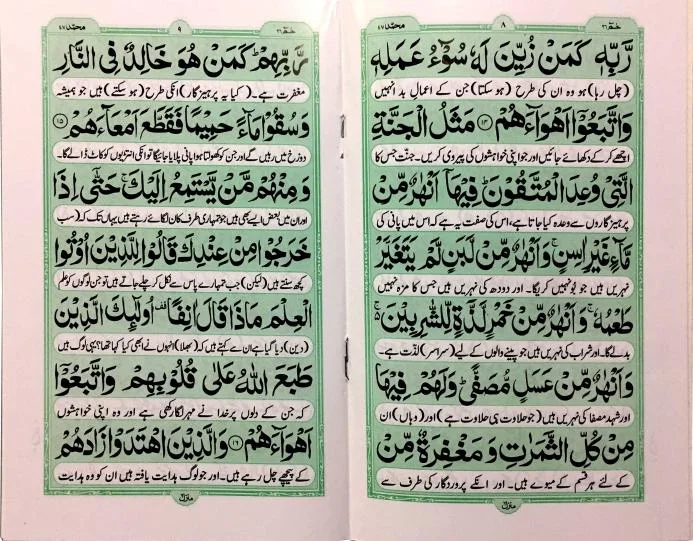 حٰمٓ ٢٦
٨
محمّد ٤٧
رَّبِّهٖ كَمَنْ زُيِّنَ لَهٗ سُوْٓءُ عَمَلِهٖ
(چل رہا) ہو وہ ان کی طرح (ہو سکتا) جن کے اعمالِ بد انہیں
وَاتَّبَعُوْٓا اَهْوَآءَهُمْ ۝١٤ مَثَلُ الْجَنَّةِ
اچھے کر کے دکھائے جائیں اور جو اپنی خواہشوں کی پیروی کریں۔ جنّت جس کا
الَّتِيْ وُعِدَ الْمُتَّقُوْنَ ؕ فِيْهَآ اَنْهٰرٌ مِّنْ
پرہیز گاروں سے وعدہ کیا جاتا ہے، اس کی صفت یہ ہے کہ اس میں پانی کی
مَّآءٍ غَيْرِ اٰسِنٍ ۚ وَاَنْهٰرٌ مِّنْ لَّبَنٍ لَّمْ يَتَغَيَّرْ
نہریں ہیں جو بو نہیں کریگا۔ اور دودھ کی نہریں ہیں جس کا مزہ نہیں
طَعْمُهٗ ۚ وَاَنْهٰرٌ مِّنْ خَمْرٍ لَّذَّةٍ لِّلشّٰرِبِيْنَ ۚ
بدلے گا۔ اور شراب کی نہریں ہیں جو پینے والوں کے لیے (سراسر) لذّت ہے۔
وَاَنْهٰرٌ مِّنْ عَسَلٍ مُّصَفًّى ؕ وَلَهُمْ فِيْهَا
اور شہد مصفا کی نہریں ہیں (جو حلاوت ہی حلاوت ہے) اور (وہاں) ان
مِنْ كُلِّ الثَّمَرٰتِ وَمَغْفِرَةٌ مِّنْ
کے لئے ہر قسم کے میوے ہیں۔ اور انکے پروردگار کی طرف سے
منزل
حٰمٓ ٢٦
٩
محمّد ٤٧
رَّبِّهِمْ ؕ كَمَنْ هُوَ خَالِدٌ فِي النَّارِ
مغفرت ہے۔ (کیا یہ پرہیز گار) انکی طرح (ہو سکتے) ہیں جو ہمیشہ
وَسُقُوْا مَآءً حَمِيْمًا فَقَطَّعَ اَمْعَآءَهُمْ ۝١٥
دوزخ میں رہیں گے اور جن کو کھولتا ہوا پانی پلایا جائیگا تو انکی انتڑیوں کو کاٹ ڈالے گا۔
وَمِنْهُمْ مَّنْ يَّسْتَمِعُ اِلَيْكَ ۚ حَتّٰىٓ اِذَا
اور ان میں بعض ایسے بھی ہیں جو تمہاری طرف کان لگائے رہتے ہیں یہاں تک کہ (سب
خَرَجُوْا مِنْ عِنْدِكَ قَالُوْا لِلَّذِيْنَ اُوْتُوا
کچھ سنتے ہیں (لیکن) جب تمہارے پاس سے نکل کر چلے جاتے ہیں تو جن لوگوں کو علم
الْعِلْمَ مَاذَا قَالَ اٰنِفًا ۟ اُولٰٓئِكَ الَّذِيْنَ
(دین) دیا گیا ہے ان سے کہتے ہیں کہ (بھلا) انہوں نے ابھی کیا کہا تھا؟ یہی لوگ ہیں
طَبَعَ اللّٰهُ عَلٰى قُلُوْبِهِمْ وَاتَّبَعُوْٓا
کہ جن کے دلوں پر خدا نے مہر لگا رکھی ہے اور وہ اپنی خواہشوں
اَهْوَآءَهُمْ ۝١٦ وَالَّذِيْنَ اهْتَدَوْا زَادَهُمْ
کے پیچھے چل رہے ہیں۔ اور جو لوگ ہدایت یافتہ ہیں ان کو وہ ہدایت
منزل